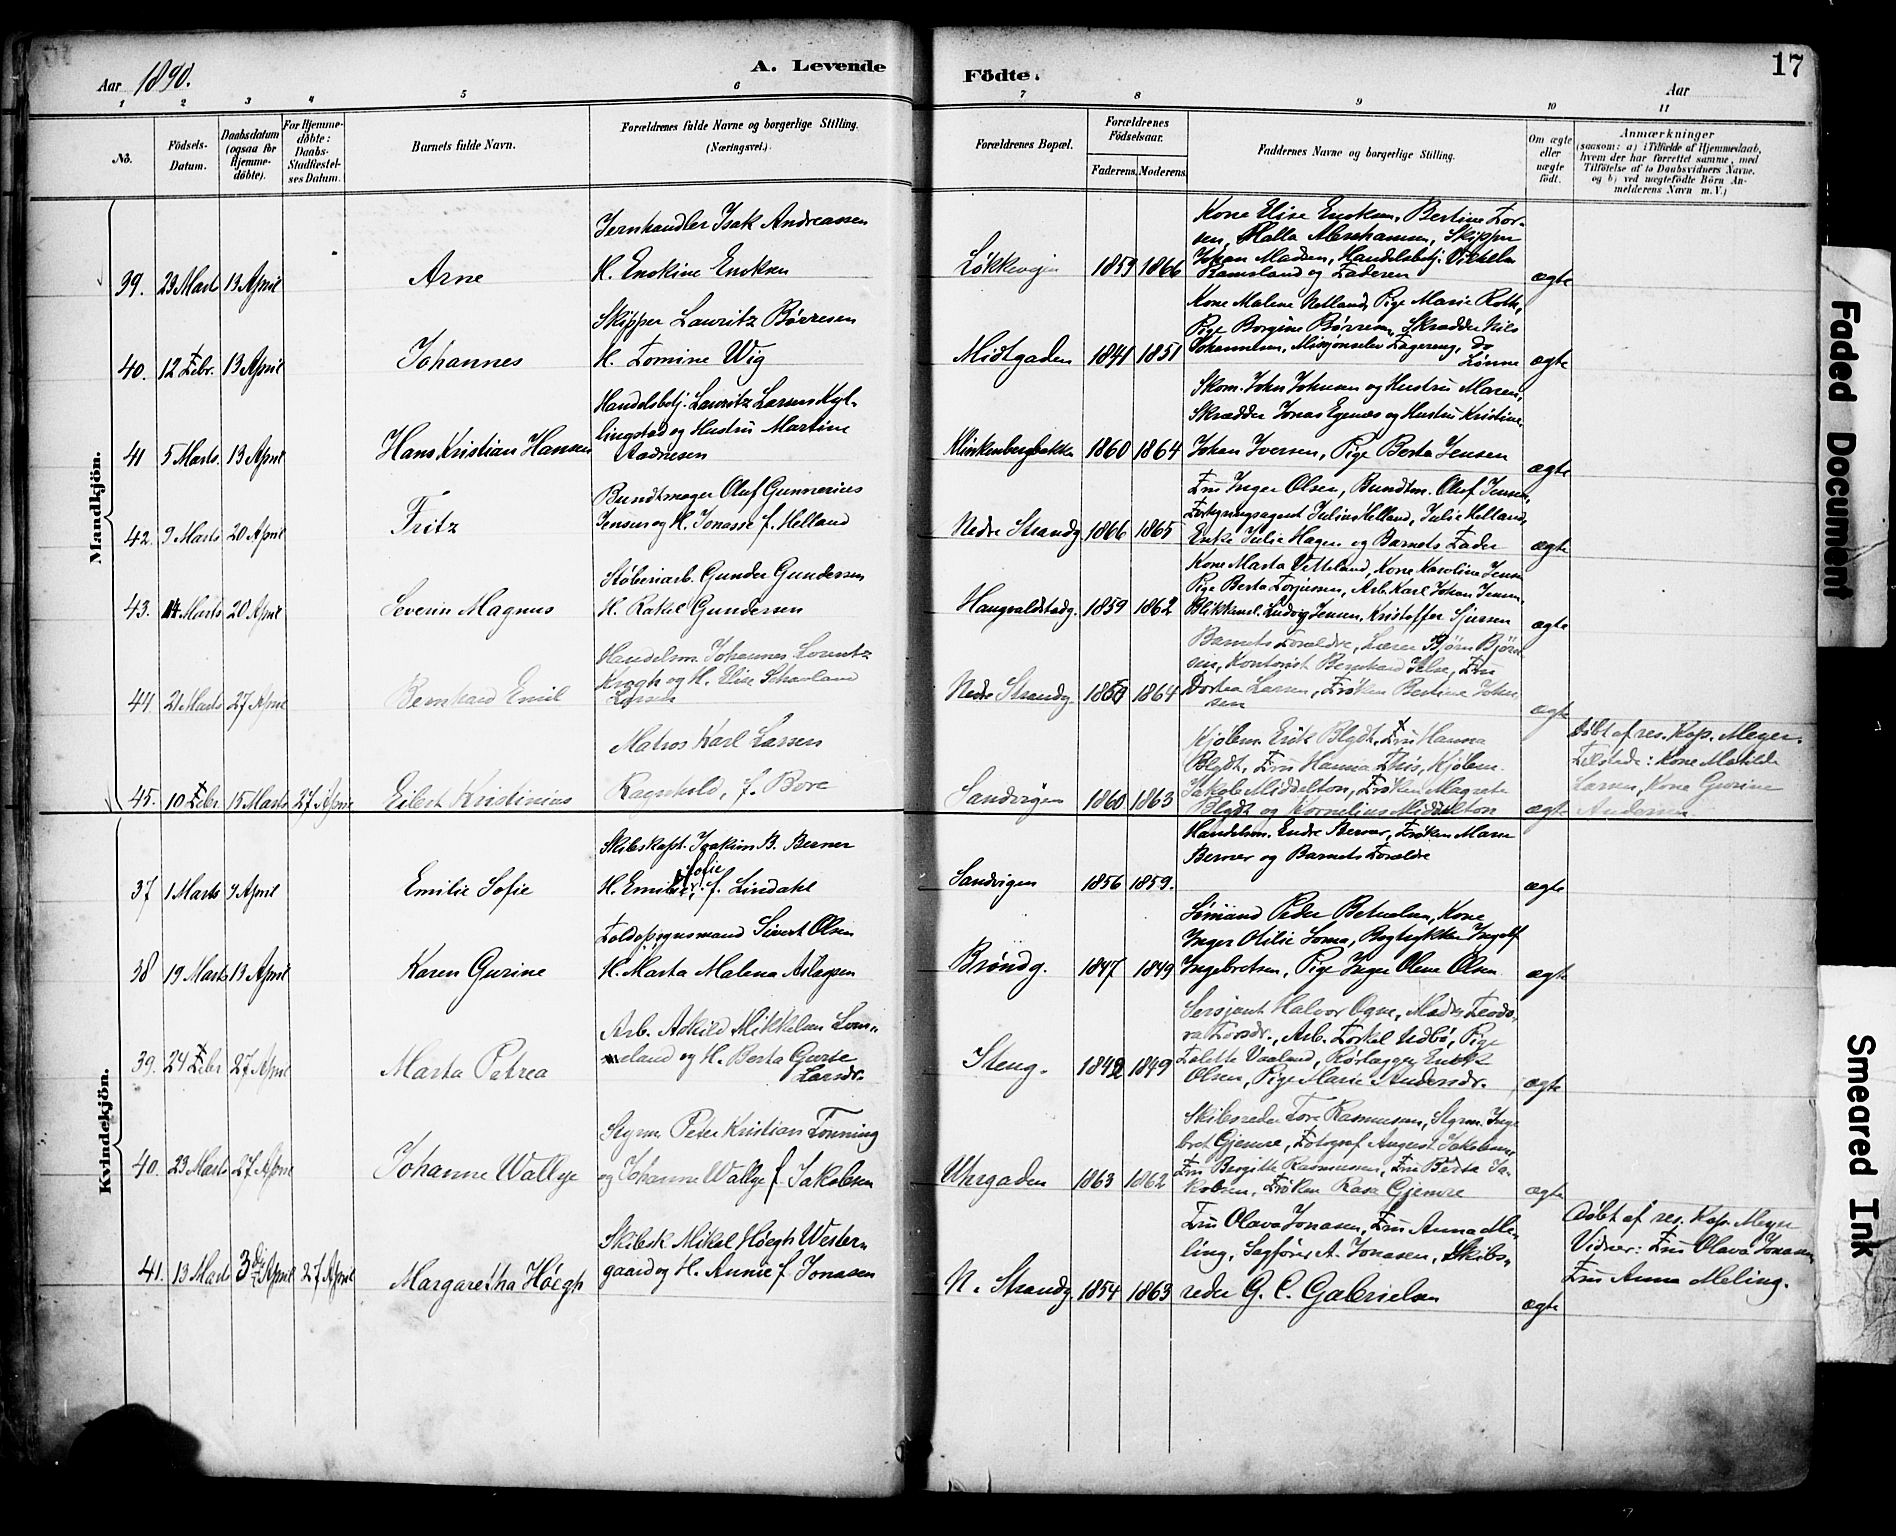 Aar 1890.
A. Levende
Födte.
17
Aar
1 2 3 4 5 6 7 8 9 10 11
No.
Födsels-
Datum.
Daabsdatum
(ogsaa for
Hjemme-
döbte).
For Hjemme-
döbte:
Daabs-
Stadfæstel-
ses Datum.
Barnets fulde Navn.
Forældrenes fulde Navne og borgerlige Stilling.
(Næringsvei.)
Forældrenes Bopæl.
Forældrenes
Födselsaar.
Faderens. Moderens.
Faddernes Navne og borgerlige Stilling.
Om ægte
eller
uægte
födt.
Anmærkninger
(saasom: a) i Tilfælde af Hjemmedaab,
hvem der har forrettet samme, med
Tilföielse af to Daabsvidners Navne.
og b) ved uægtefödte Börn An-
melderens Navn m. V.)
Mandkjön.
39. 23 Marts 13 April
Arne
Jernhandler Isak Andreassen
H. Enokine Enoksen
Løkkevejen
1859 1866
Kone Elise Enoksen, Bertine Tor-
sen, Malla Abrahamsen, Skipper
Johan Madsen, Handelsbetj. Vilhelm
Ramsland og Faderen
ægte
40. 12 Febr. 13 April
Johannes
Skipper Lauritz Børresen
H. Tomine Wig
Midtgaden
1841 1851
Kone Malene Netland, Pige Marie Roth,
Pige Borgine Børresen, Skrædder Nils
Johannesen, Misjonselev Fagereng, do
Lønne
ægte
41 5 Marts. 13 April
Hans Kristian Hansen
Handelsbetj. Lauritz Larsen Kyl-
lingstad og Hustru Martine
Aadnesen
Klinkenbergbakken
1860 1864
Skom. John Johnsen og Hustru Maren,
Skrædder Jonas Egenæs og Hustru Kristine
Johan Iversen, Pige Berta Jensen
ægte
42. 9 Marts 20 April
Fritz
Bundtmager Oluf Gunnerius
Jensen og H. Jonasse f. Helland
Nedre Strandg
1866 1865
Fru Inger Olsen, Bundtm. Oluf Jensen,
Forsyringsagent Julius Helland, Julie Helland,
Enke Julie Hagen og Barnets Fader
ægte
43. 14 Marts 20 April
Severin Magnus
Støberiarb. Gunder Gundersen
H. Rakel Gundersen
Haugvaldstadg.
1859 1862
Kone Marta Vetteland, Kone Karoline Jensen
Pige Berta Torjussen, Arb. Karl Johan Jensen,
Blikkensl. Ludvig Jensen, Kristoffer Sjursen
ægte
44. 21 Marts 27 April
Bernhard Emil
Handelsm. Johannes Lorentz
Krogh og H. Elise Schavland
Larsen
Nedre Strandg
1864
Barnets Forældre, Lærer Bjørn Bjørn-
sen, Kontorist Bernhard Ilse, Fru
Dortea Larsen, Frøken Bertine John
sen
ægte
45. 10 Febr 15 Marts 27 April
Eilert Kristinius
Matros Karl Larsen
Ragnhild, f. Bore
Sandvigen
1860 1863
Kjøbm. Erik Blydt, Fru Hanna
Blydt, Fru Hanna This, Kjøbm.
Jakob Middelton, Frøken Magrete
Blydt og Kornelius Middelton
ægte
Døbt af res. Kap. Meyer.
Tilstede: Kone Matilde
Larsen, Kone Gurine
Andersen.
Kvindekjön.
37 1 Marts 7 April
Emilie Sofie
Skibskapt. Joakim B. Berner
H. Emilie Sofie, f. Lindahl
Sandvigen
1856 1859.
Handelsm. Endre Berner, Frøken Maren
Berner og Barnets Forældre
ægte
38 19 Marts 13 April
Karen Gurine
Toldopsynsmand Sivert Olsen
H. Marta Malena Aslagsen
Brøndg.
1847 1849
Sømand Peder Betuelsen, Kone
Inger Otilie Soma, Bogtrykker Ingolf
Ingebretsen, Pige Inger Olene Olsen
ægte
39. 24 Febr 27 April
Marta Petrea
Arb. Askild Mikkelsen Lom-
meland og H. Berta Gurie
Larsdr.
Steng.
1842 1849
Sersjant Halvor Ogne, Mad. Teodo-
ra Torsdr., Arb. Torkel Udbø, Pige
Tolette Vaaland, Rørlægger Enok
Olsen, Pige Marie Andersdr.
ægte
40. 23 Marts 27 April
Johanne Wallye
Styrm Peter Kristian Tonning
og Johanne Wallye f Jakobsen
Uhrgaden
1863 1862
Skibsreder Tore Rasmussen, Styrm. Inge
bret Gjemre, Fotograf August Jakobsen,
Fru Bergitte Rasmussen, Fru Berta Ja-
kobsen, Frøken Rasa Gjemre
ægte
41. 13 Marts 3die April 27 April
Margaretha Höegh
Skibsk Mikal Høegh Western
gaard og H. Annie f Jonasen
N. Strandg.
1854 1863
Fru Olava Jonasen, Fru Anna Me-
ling, Sagfører A. Jonasen, Skibs,
reder G. C. Gabrielsen
ægte
Døbt af res. Kap. Meyer
Vidner: Fru Olava Jonasen
Fru Anna Meling.
Faded Document
Smeared Ink